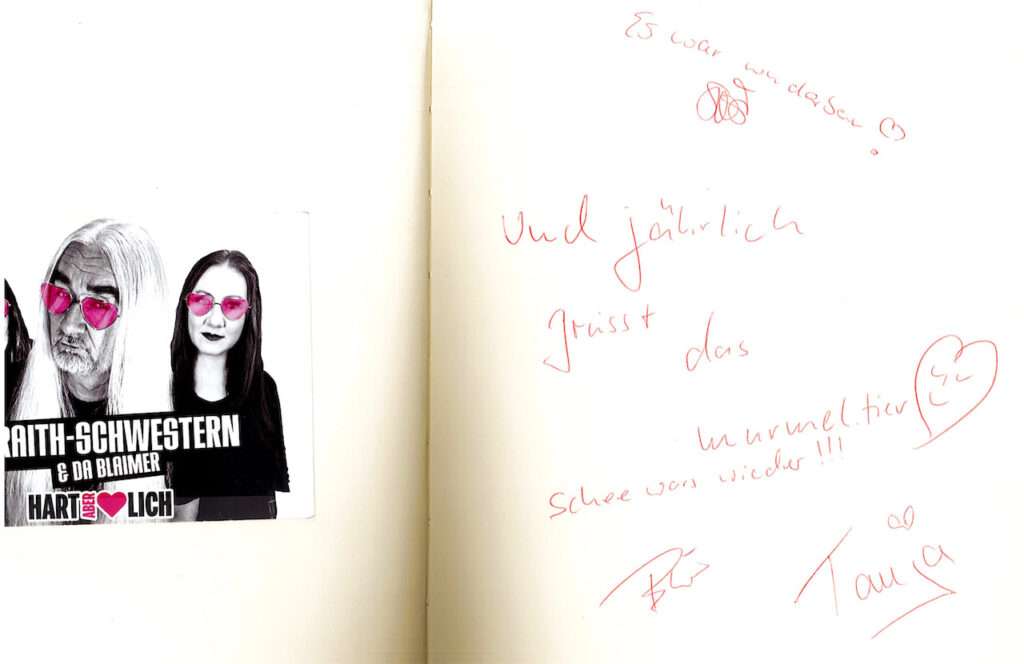 RAITH-SCHWESTERN
& DA BLAIMER
HART ABER LICH
Es war wunderbar!
Und jährlich
grüsst das
murmeltier
Schee wars wieder!!!
Tanja